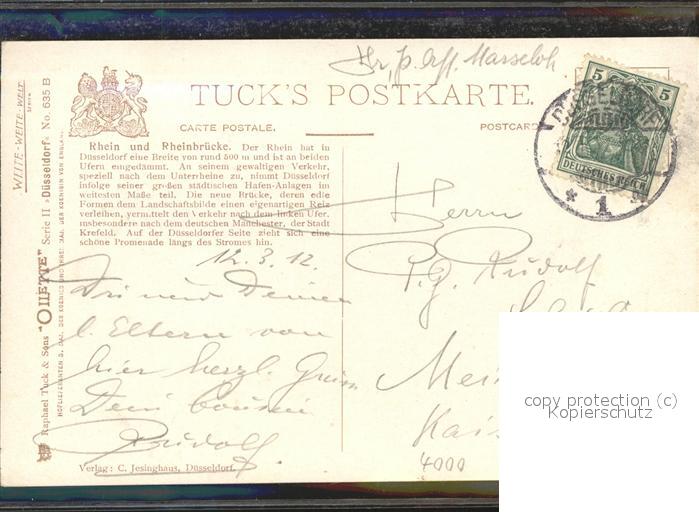 TUCK'S POSTKARTE.
CARTE POSTALE.
POSTCARD
Rhein und Rheinbrücke. Der Rhein hat in
Düsseldorf eine Breite von rund 500 m und ist an beiden
Ufern eingedämmt. An seinem gewaltigen Verkehr,
speziell nach dem Unterrheine zu, nimmt Düsseldorf
infolge seiner großen städtischen Hafen-Anlagen im
weitesten Maße teil. Die neue Brücke, deren edle
Formen dem Landschaftsbilde einen eigenartigen Reiz
verleihen, vermittelt den Verkehr nach dem linken Ufer,
insbesondere nach dem deutschen Manchester, der Stadt
Krefeld. Auf der Düsseldorfer Seite zieht sich eine
schöne Promenade längs des Stromes hin.
12.3.12.
Dir und Deinen
l. Eltern von
hier herzl. Grüße
Dein Cousin
Rudolf
Verlag: C. Jesinghaus, Düsseldorf.
Herrn
Rudolf
Kais
4000
5 5
DEUTSCHES REICH
* 1
WEITE-WEITE-WELT
Serie
Raphael Tuck & Sons "OILETTE" Serie II »Düsseldorf« No. 635 B
copy protection (c)
Kopierschutz